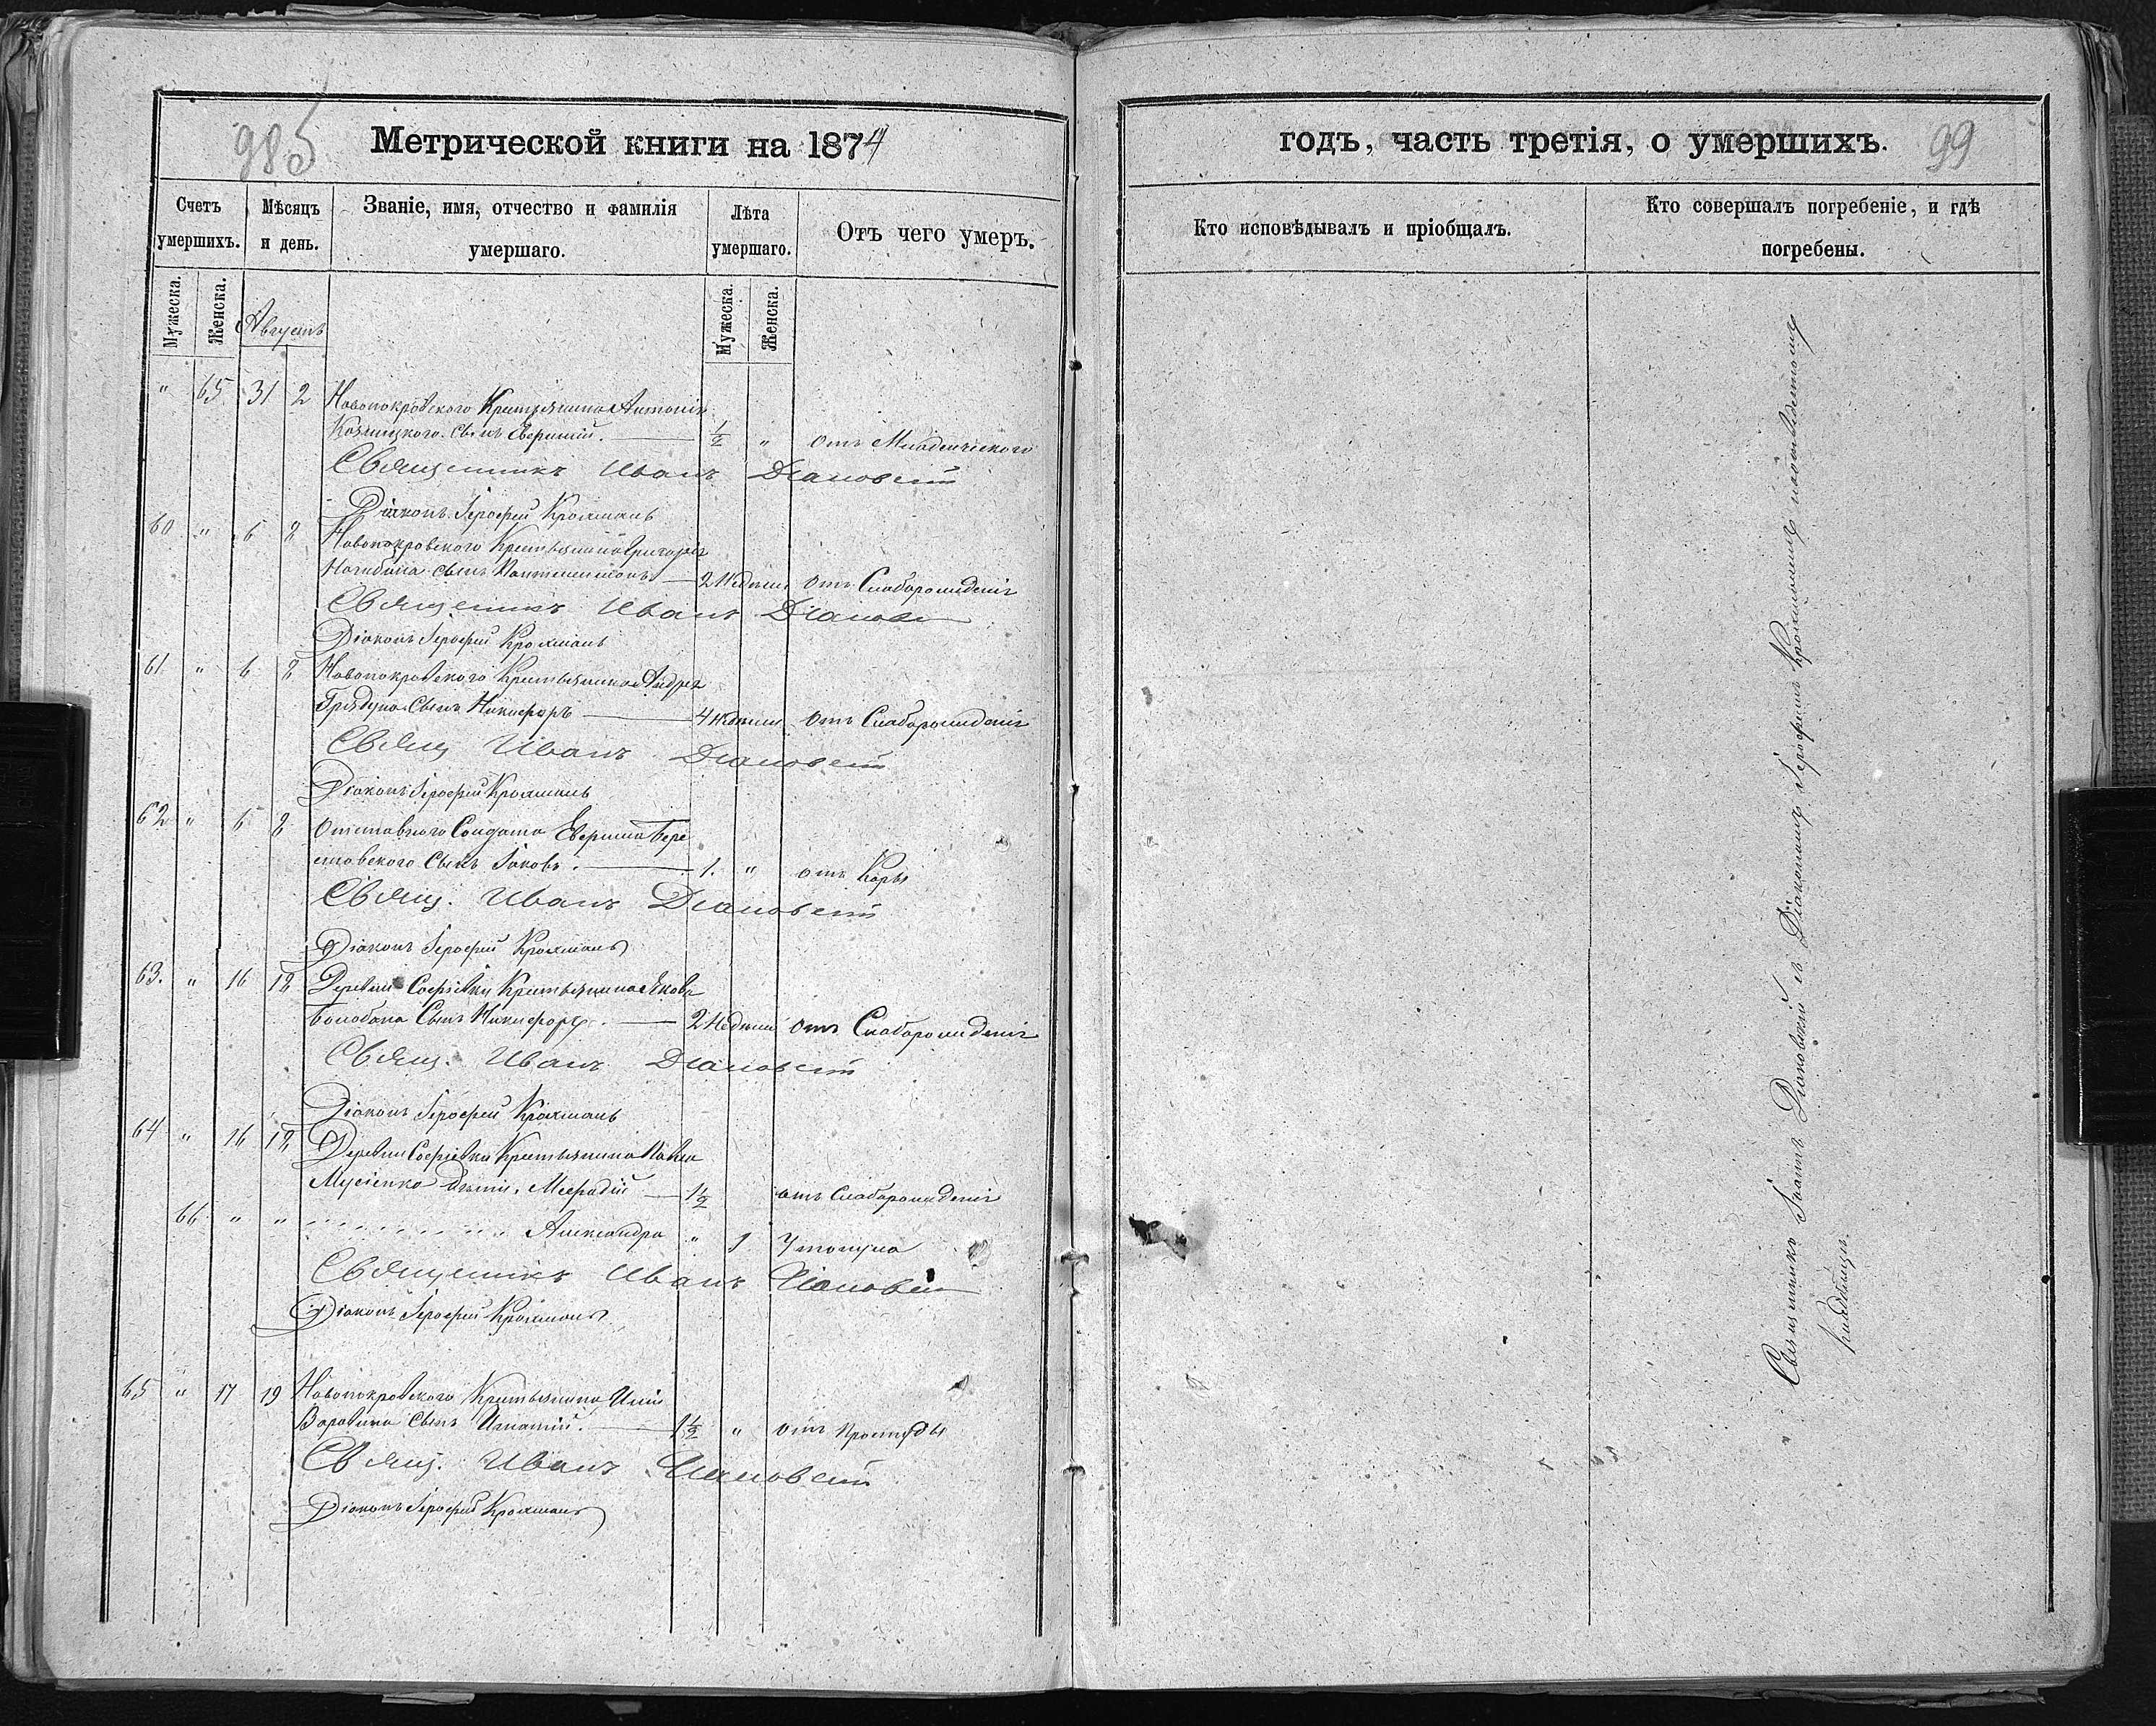 985
Метрической книги на 1874
Счетъ умершихъ.
Мѣсяцъ и день.
Званіе, имя, отчество и фамилія умершаго.
Лѣта умершаго.
Отъ чего умеръ.
Мужеска.
Женска.
Августъ
Мужеска.
Женска.
" 65 31 2 Новопокровского Крестьянина Антонія
сынъ 1/2 " отъ Младенческого
Священникъ Иванъ Діаковскій
Діаконъ Іерофей Крохмаль
60 " 6 8 Новопокровского Крестьянина Григорія
сынъ Пантелеимонъ 2 Недели отъ Слаборожденія
Священикъ Иванъ
Діаконъ Іерофей Крохмаль
61 " 6 8 Новопокровского Крестьянина Андрея
Сынъ Никифоръ 4 недели отъ Слаборожденія
Свящ Иванъ Діаковскій
Діаконъ Іерофей Крохмаль
62 " 6 8 Отставного Солдата Бере
стовского Сынъ Іаковъ. 1. " отъ Коры
Свящ. Иванъ Діаковскій
Діаконъ Іерофей Крохмаль
63. " 16 18 Деревни Софіевки Крестьянина Якова
Балабана Сынъ Никифоръ. 2 Недели отъ Слаборожденія
Свящ. Иванъ Діаковскій
Діаконъ Іерофей Крохмаль
64 " 16 18 Деревни Софіевки Крестьянина Павла
Мусіенко дѣти, Мефодій 1 1/2 отъ Слаборожденія
66 " " Александра " 1 Утонула
Священникъ Иванъ
Діаконъ Іерофей Крохмаль
65 " 17 19 Новопокровского Крестьянина
Сынъ Игнатій. 1 1/2 " отъ простуды
Свящ. Иванъ Діаковскій
Діаконъ Іерофей Крохмаль
99
годъ, часть третія, о умершихъ.
Кто исповѣдывалъ и пріобщалъ.
Кто совершалъ погребеніе, и гдѣ погребены.
Священникъ Іоаннъ Діаковскій съ Діакономъ Іерофеемъ Крохмалемъ
кладбищѣ.